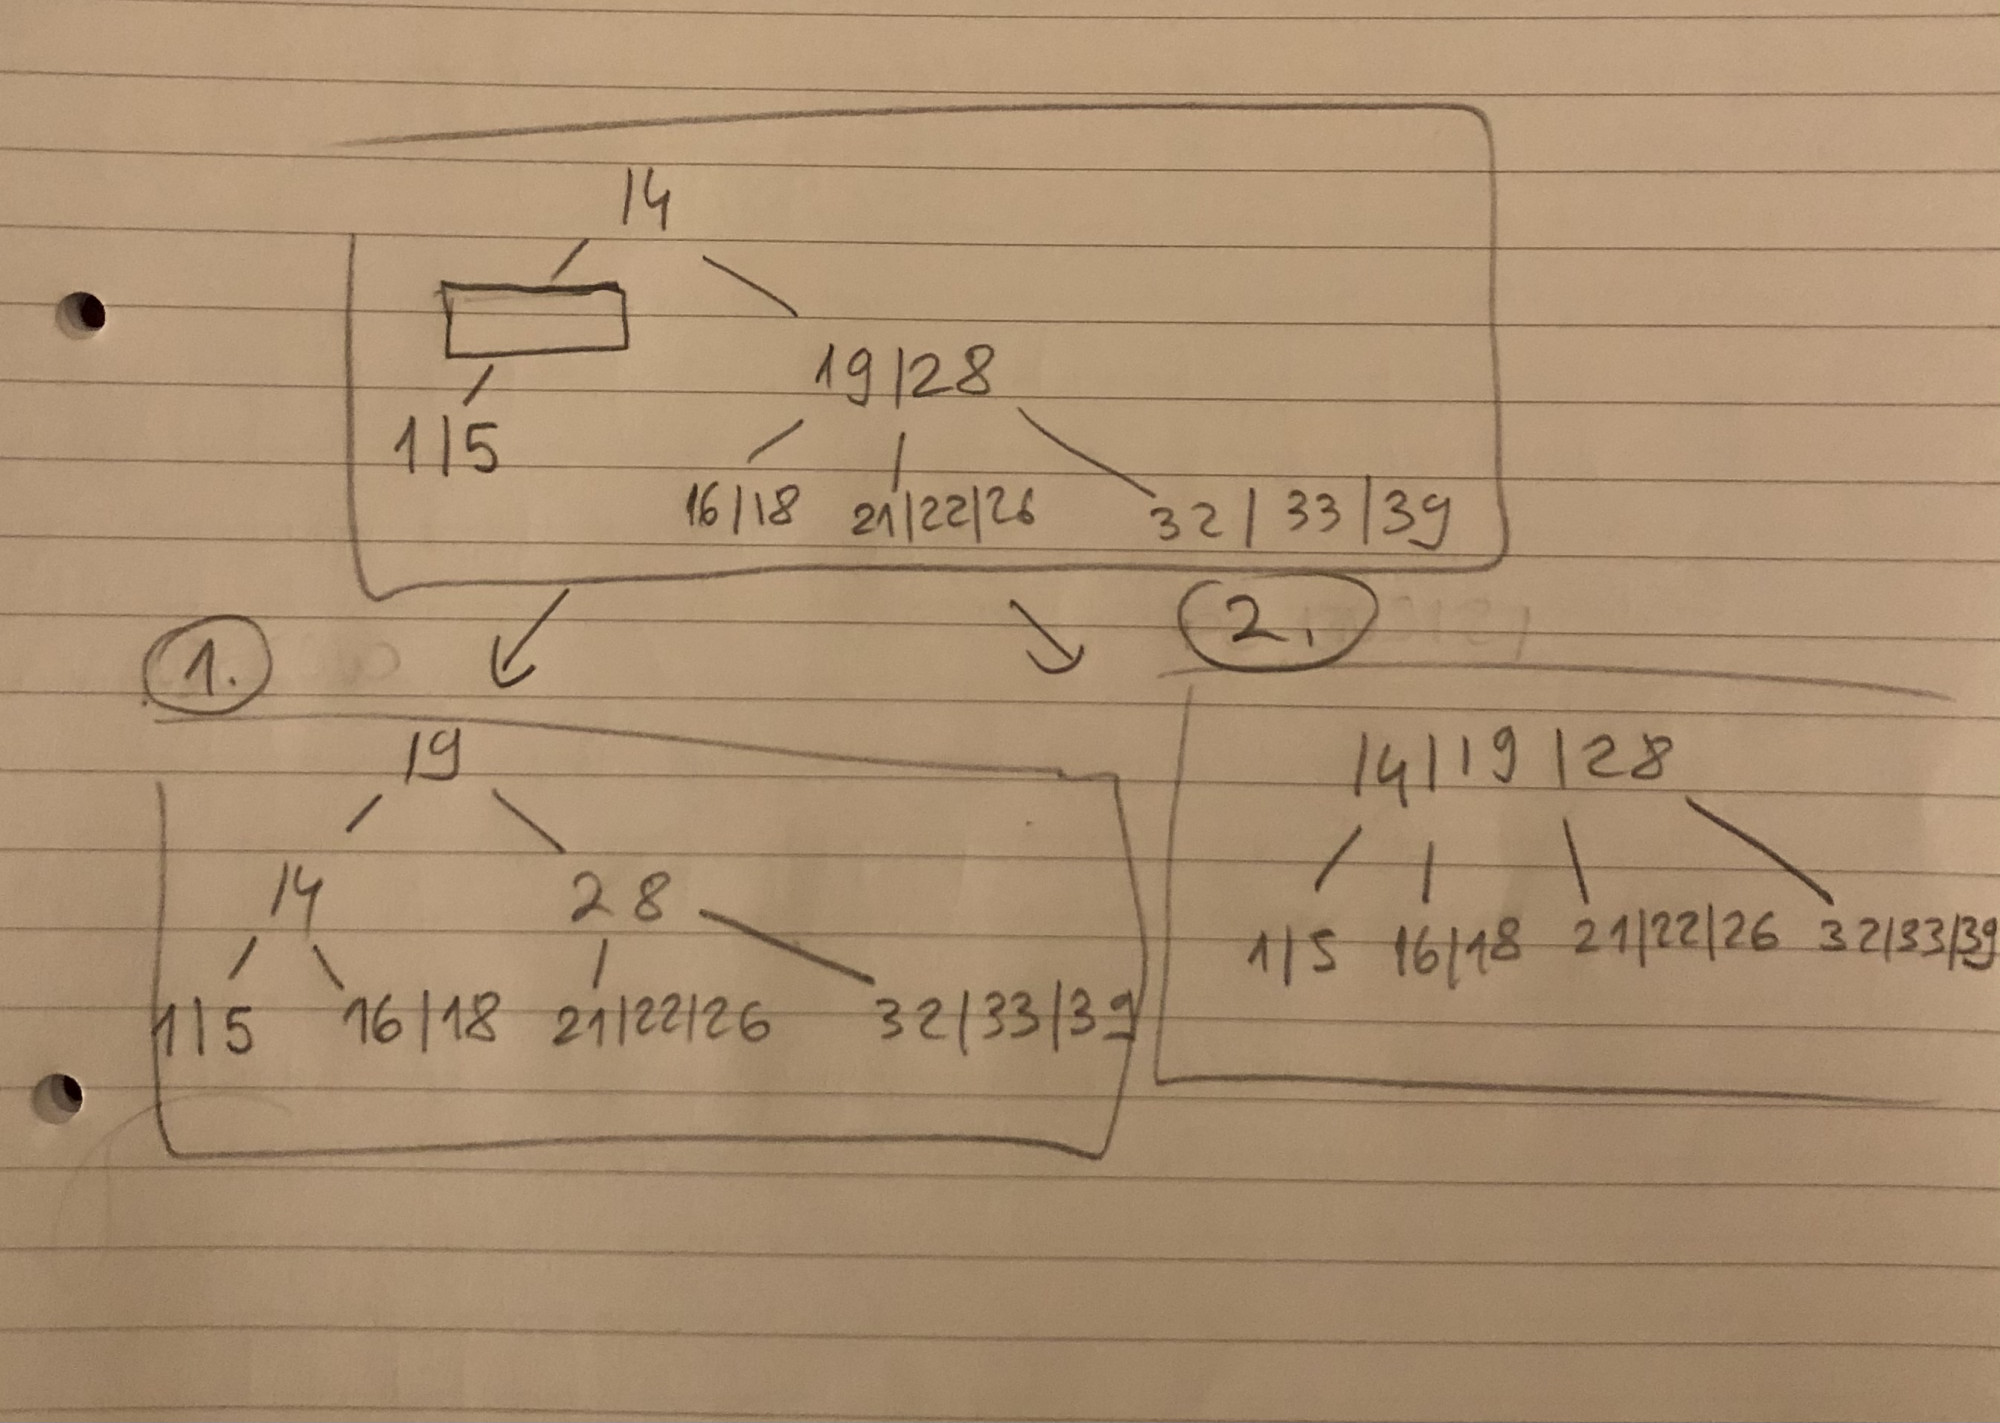 14
19|28
1|5
16|18 21|22|26 32|33|39
1.
2.
19
14 28
1|5 16|18 21|22|26 32|33|39
14|19|28
1|5 16|18 21|22|26 32|33|39